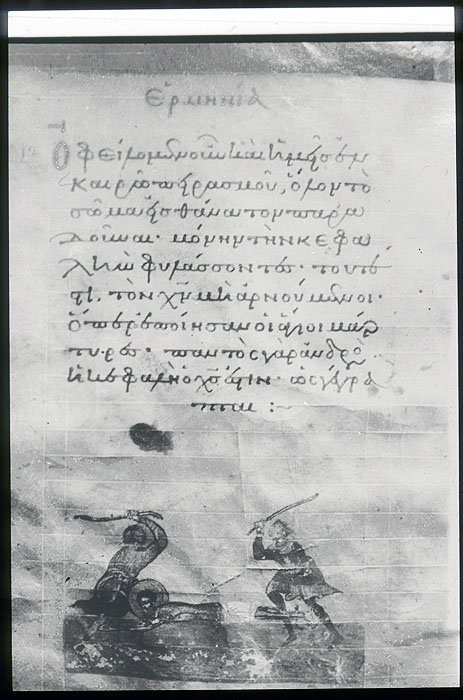 Ἑρμηνία
Ὀφείλομεν οὖν καὶ ἡμεῖς ἐν
καιρῶ πειρασμοῦ, ὅλον τὸ
σῶμα εἰς θάνατον παρα
δοῦναι· μόνην τὴν κεφα
λὴν φυλάσσοντες· τουτέ
στι, τὸν χν μὴ ἀρνούμενοι·
ὅπερ ἐποίησαν οἱ ἅγιοι μάρ
τυρες· παντὸς γὰρ ἀνδρὸς
ἡ κεφαλὴ ὁ χς ἐστιν· ὡς γέγρα
πται: